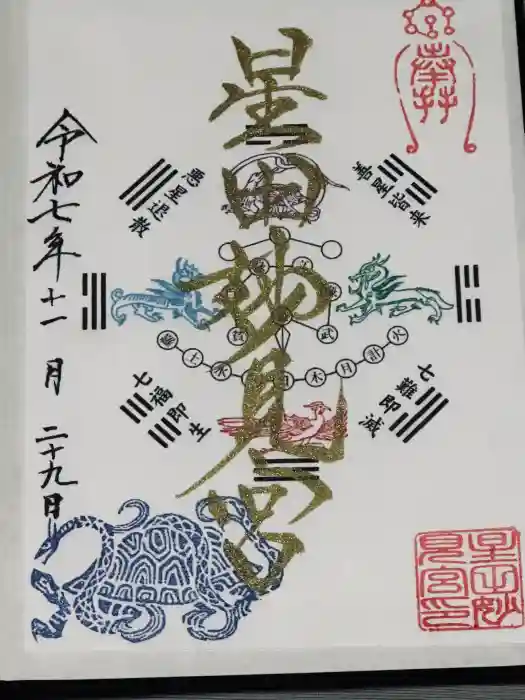 奉拝
星田妙見宮
善星皆来
悪星退散
七難即滅
七福即生
火計月木
水土羅
武
貪
令和七年十一月二十九日
星田妙見宮印